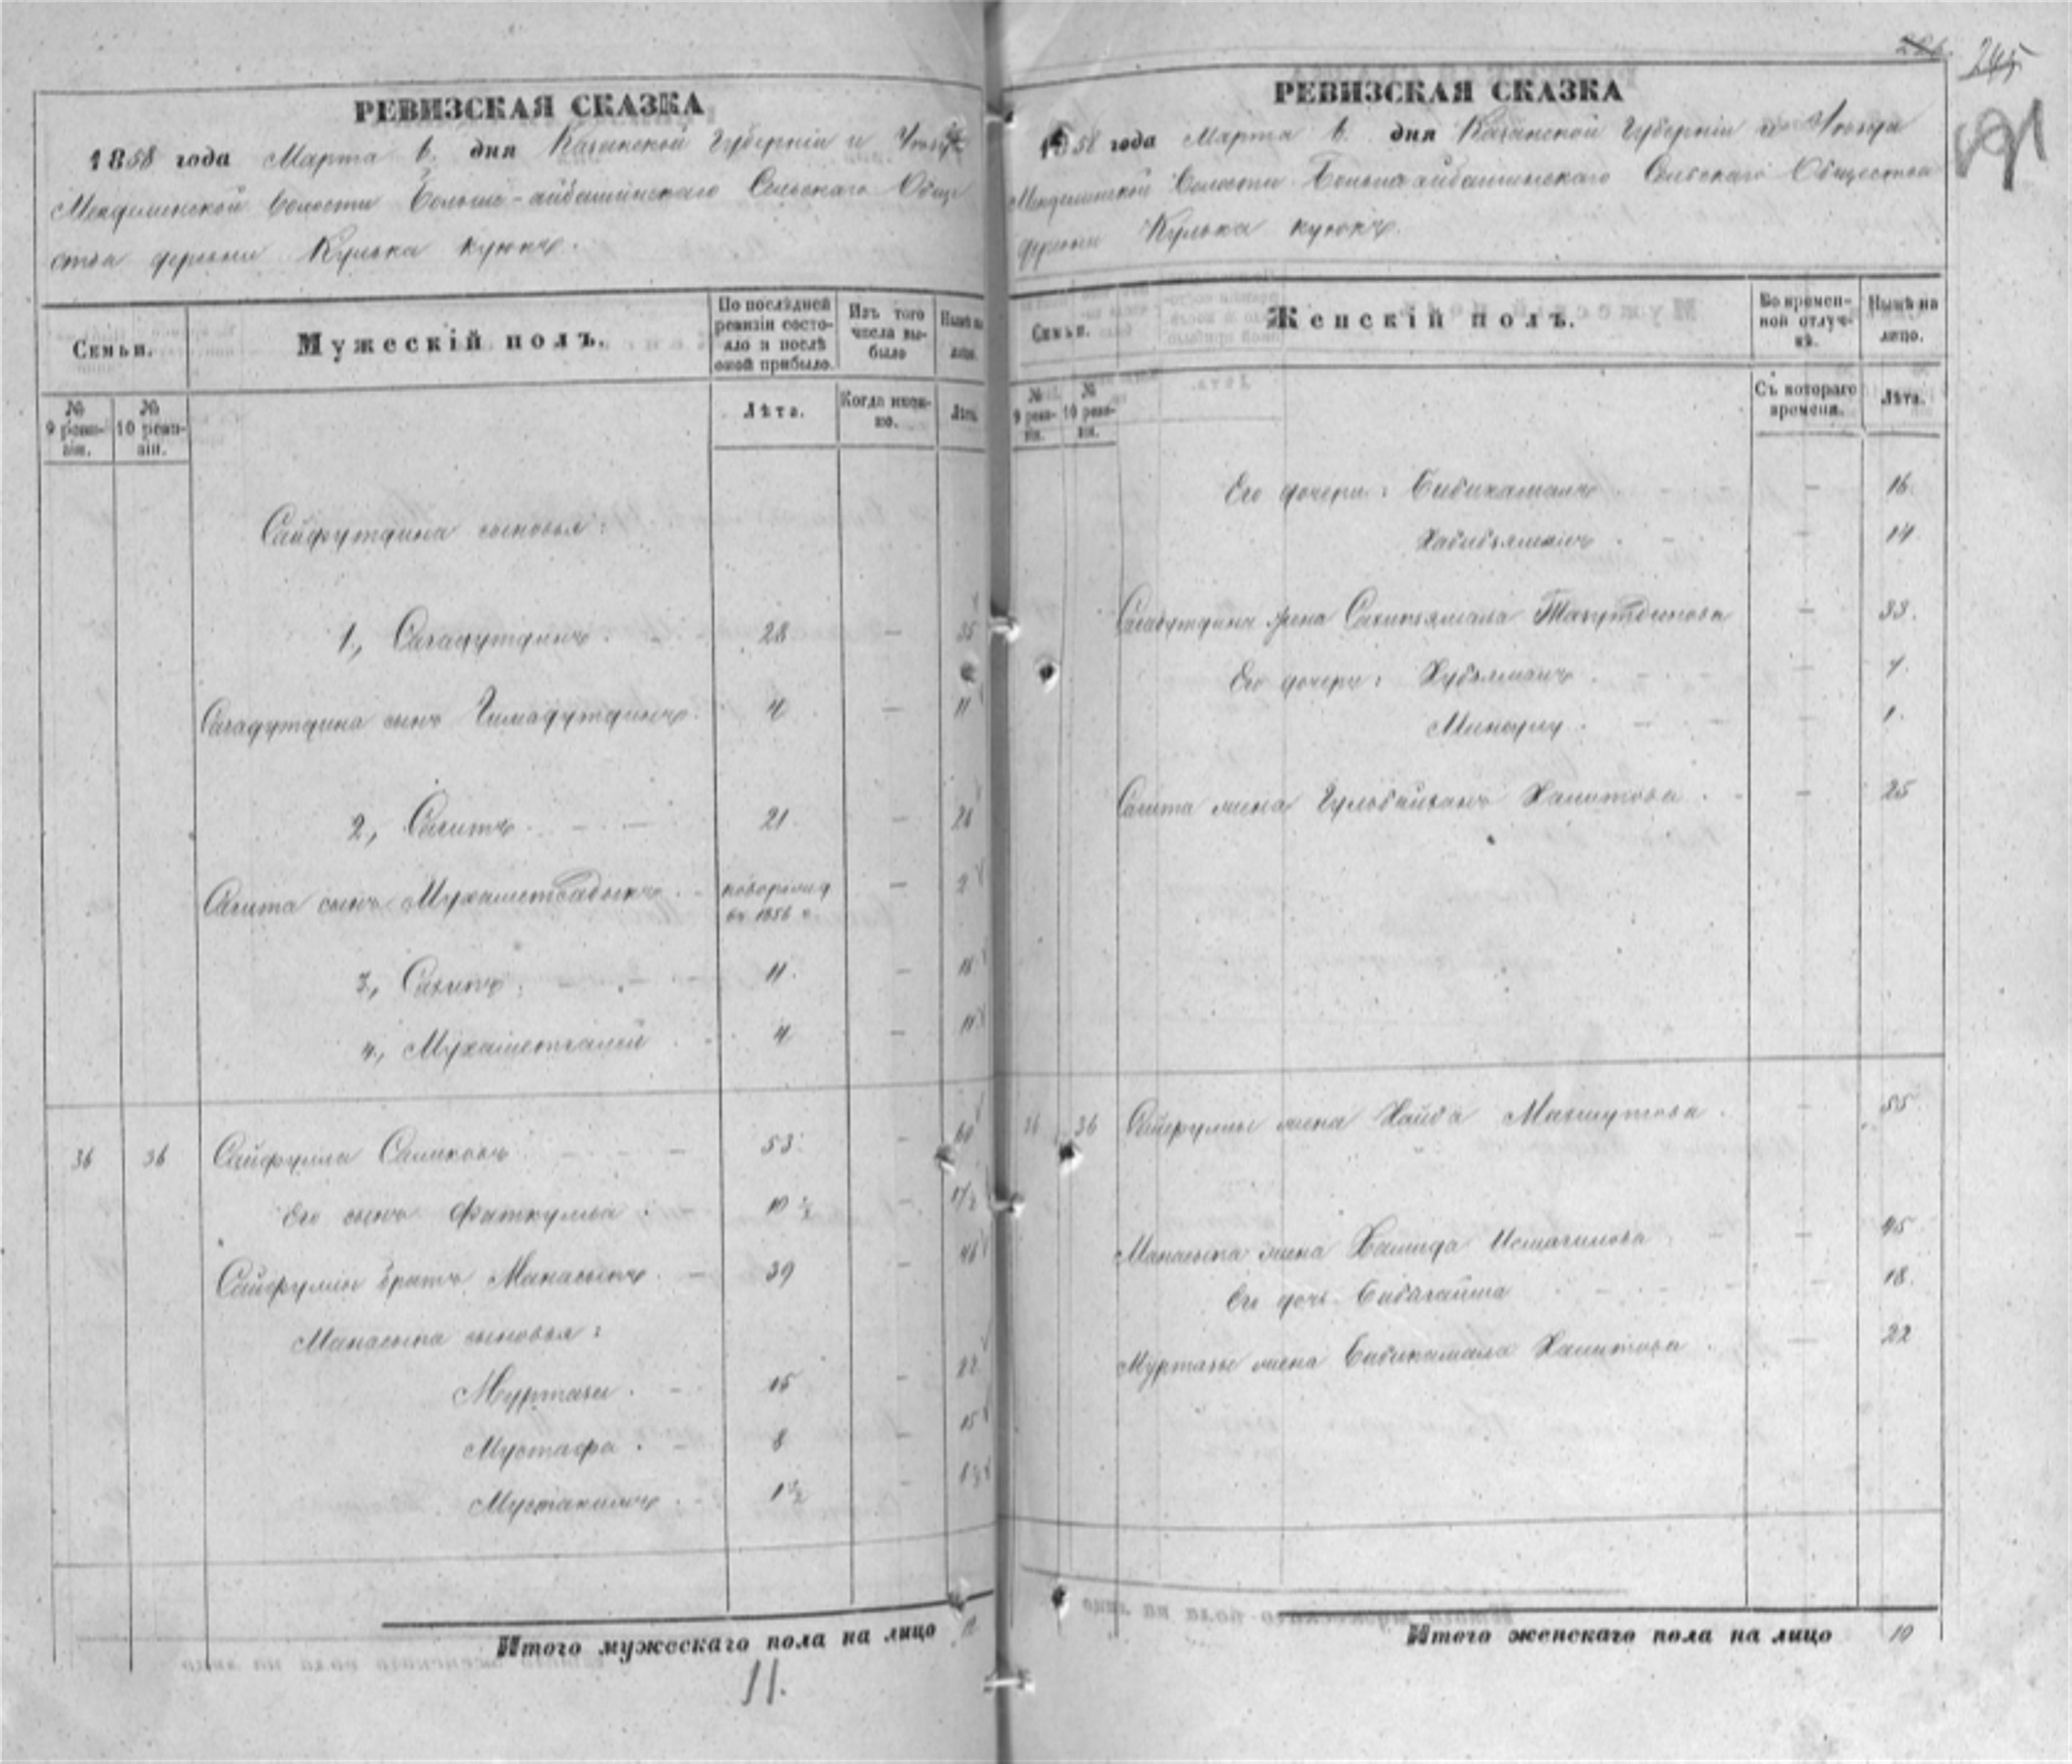 РЕВИЗСКАЯ СКАЗКА
1858 года Марта 6. дня Казанской Губерніи и Уѣзда
Менделинской Волости Больше-айбашинскаго Сельскаго Обще
ства деревни Кулька куюкъ.
Семьи.
Мужескій полъ.
По послѣдней ревизіи состояло и послѣ оной прибыло.
Изъ того числа выбыло
Нынѣ на лицо.
№ 9 ревизіи.
№ 10 ревизіи.
Лѣта.
Когда именно.
Лѣта.
Сайфутдина сыновья:
1, Сагадутдинъ. 28 — 35
Сагадутдина сынъ Гимадутдинъ. 4 — 11
2, Сагитъ. 21. — 28
Сагита сынъ Мухаметсадыкъ новорожд въ 1856 г. — 2
3, Сахипъ. 11. — 18
4, Мухаметгалей 4 — 11
36 36 Сайфулла Салиховъ 53. — 60
Его сынъ Фаткулла. 10 ½ — 17½
Сайфуллы братъ Манасыпъ. 39 — 46
Манасыпа сыновья:
Муртазы. 15 — 22
Мустафа. 8 — 15
Мустакимъ 1 ½ — 8½
Итого мужескаго пола на лицо 11
11.
245
РЕВИЗСКАЯ СКАЗКА
1858 года Марта 6. дня Казанской Губерніи и Уѣзда
Менделинской Волости Больше айбашинскаго Сельскаго Общества
деревни Кулька куюкъ.
Семьи.
Женскій полъ.
Во временной отлучкѣ.
Нынѣ на лицо.
№ 9 ревизіи.
№ 10 ревизіи.
Съ котораго времени.
Лѣта.
Его дочери: Бибикамалъ — 16.
Хабибзямалъ. — 14
Сагадутдина жена Сахипзямала Тазутдинова — 33.
Его дочери: Хубзямалъ. — 7.
Минсулу. — 1.
Сагита жена Гульбайханъ Хамитова. — 25
36 36 Сайфуллы жена Хайба Магшутова. — 55.
Манасыпа жена Хамида Исмагилова — 45
Его дочь Бибигайша — 18.
Муртазы жена Бибикамала Хамитова. — 22
Итого женскаго пола на лицо 10